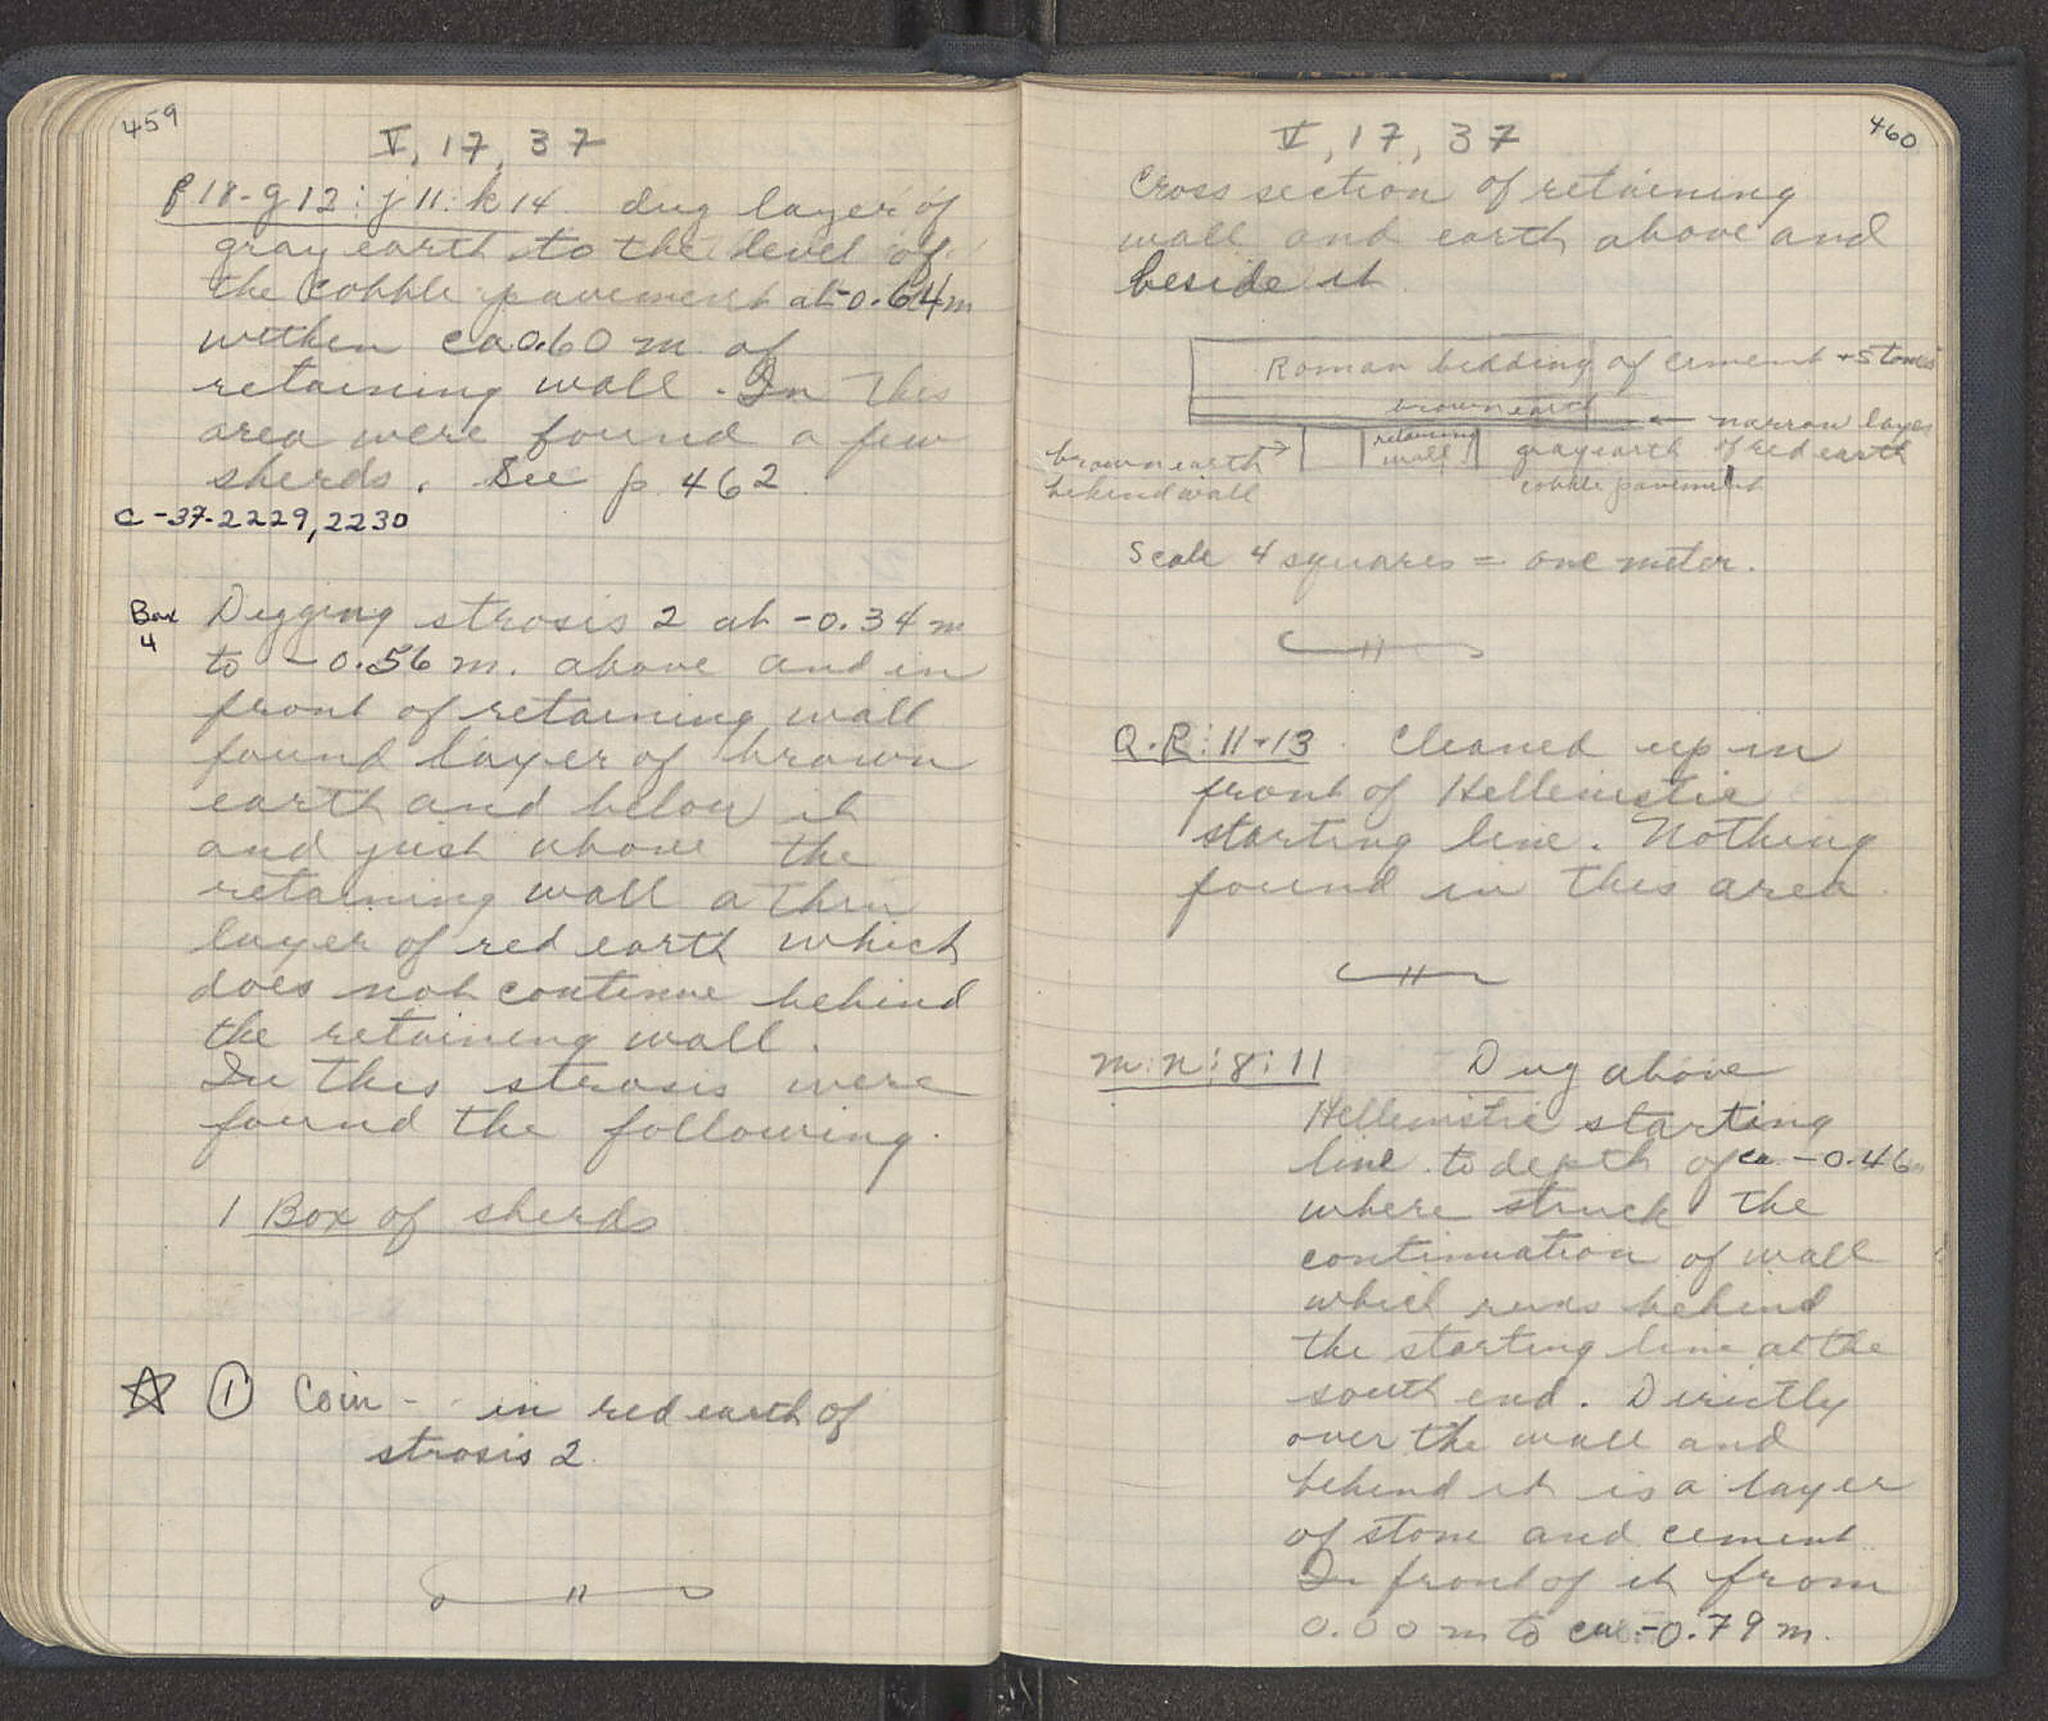 459
V, 17, 37
f 18-g12:j11:k14 dug layer of
gray earth to the level of
the cobble pavement at -0.64m
within ca 0.60 m of
retaining wall. In this
area were found a few
sherds. See p 462
C-37-2229, 2230
Box
4
Digging strosis 2 at -0.34 m
to -0.56 m. above and in
front of retaining wall
found layer of brown
earth and below it
and just above the
retaining wall a thin
layer of red earth which
does not continue behind
the retaining wall.
In this strosis were
found the following.
1 Box of sherds
① Coin - in red earth of
strosis 2.
460
V, 17, 37
Cross section of retaining
wall and earth above and
beside it
Roman bedding of cement + stones
brown earth
← narrow layer
of red earth
retaining
wall
gray earth
cobble pavement
brown earth →
behind wall
Scale 4 squares = one meter.
Q.R:11-13 Cleaned up in
front of Hellenistic
starting line. Nothing
found in this area.
m:n:8:11 Dug above
Hellenistic starting
line to depth of ca -0.46m
where struck the
continuation of wall
which runs behind
the starting line at the
south end. Directly
over the wall and
behind it is a layer
of stone and cement.
In front of it from
0.00 m to ca -0.79 m.